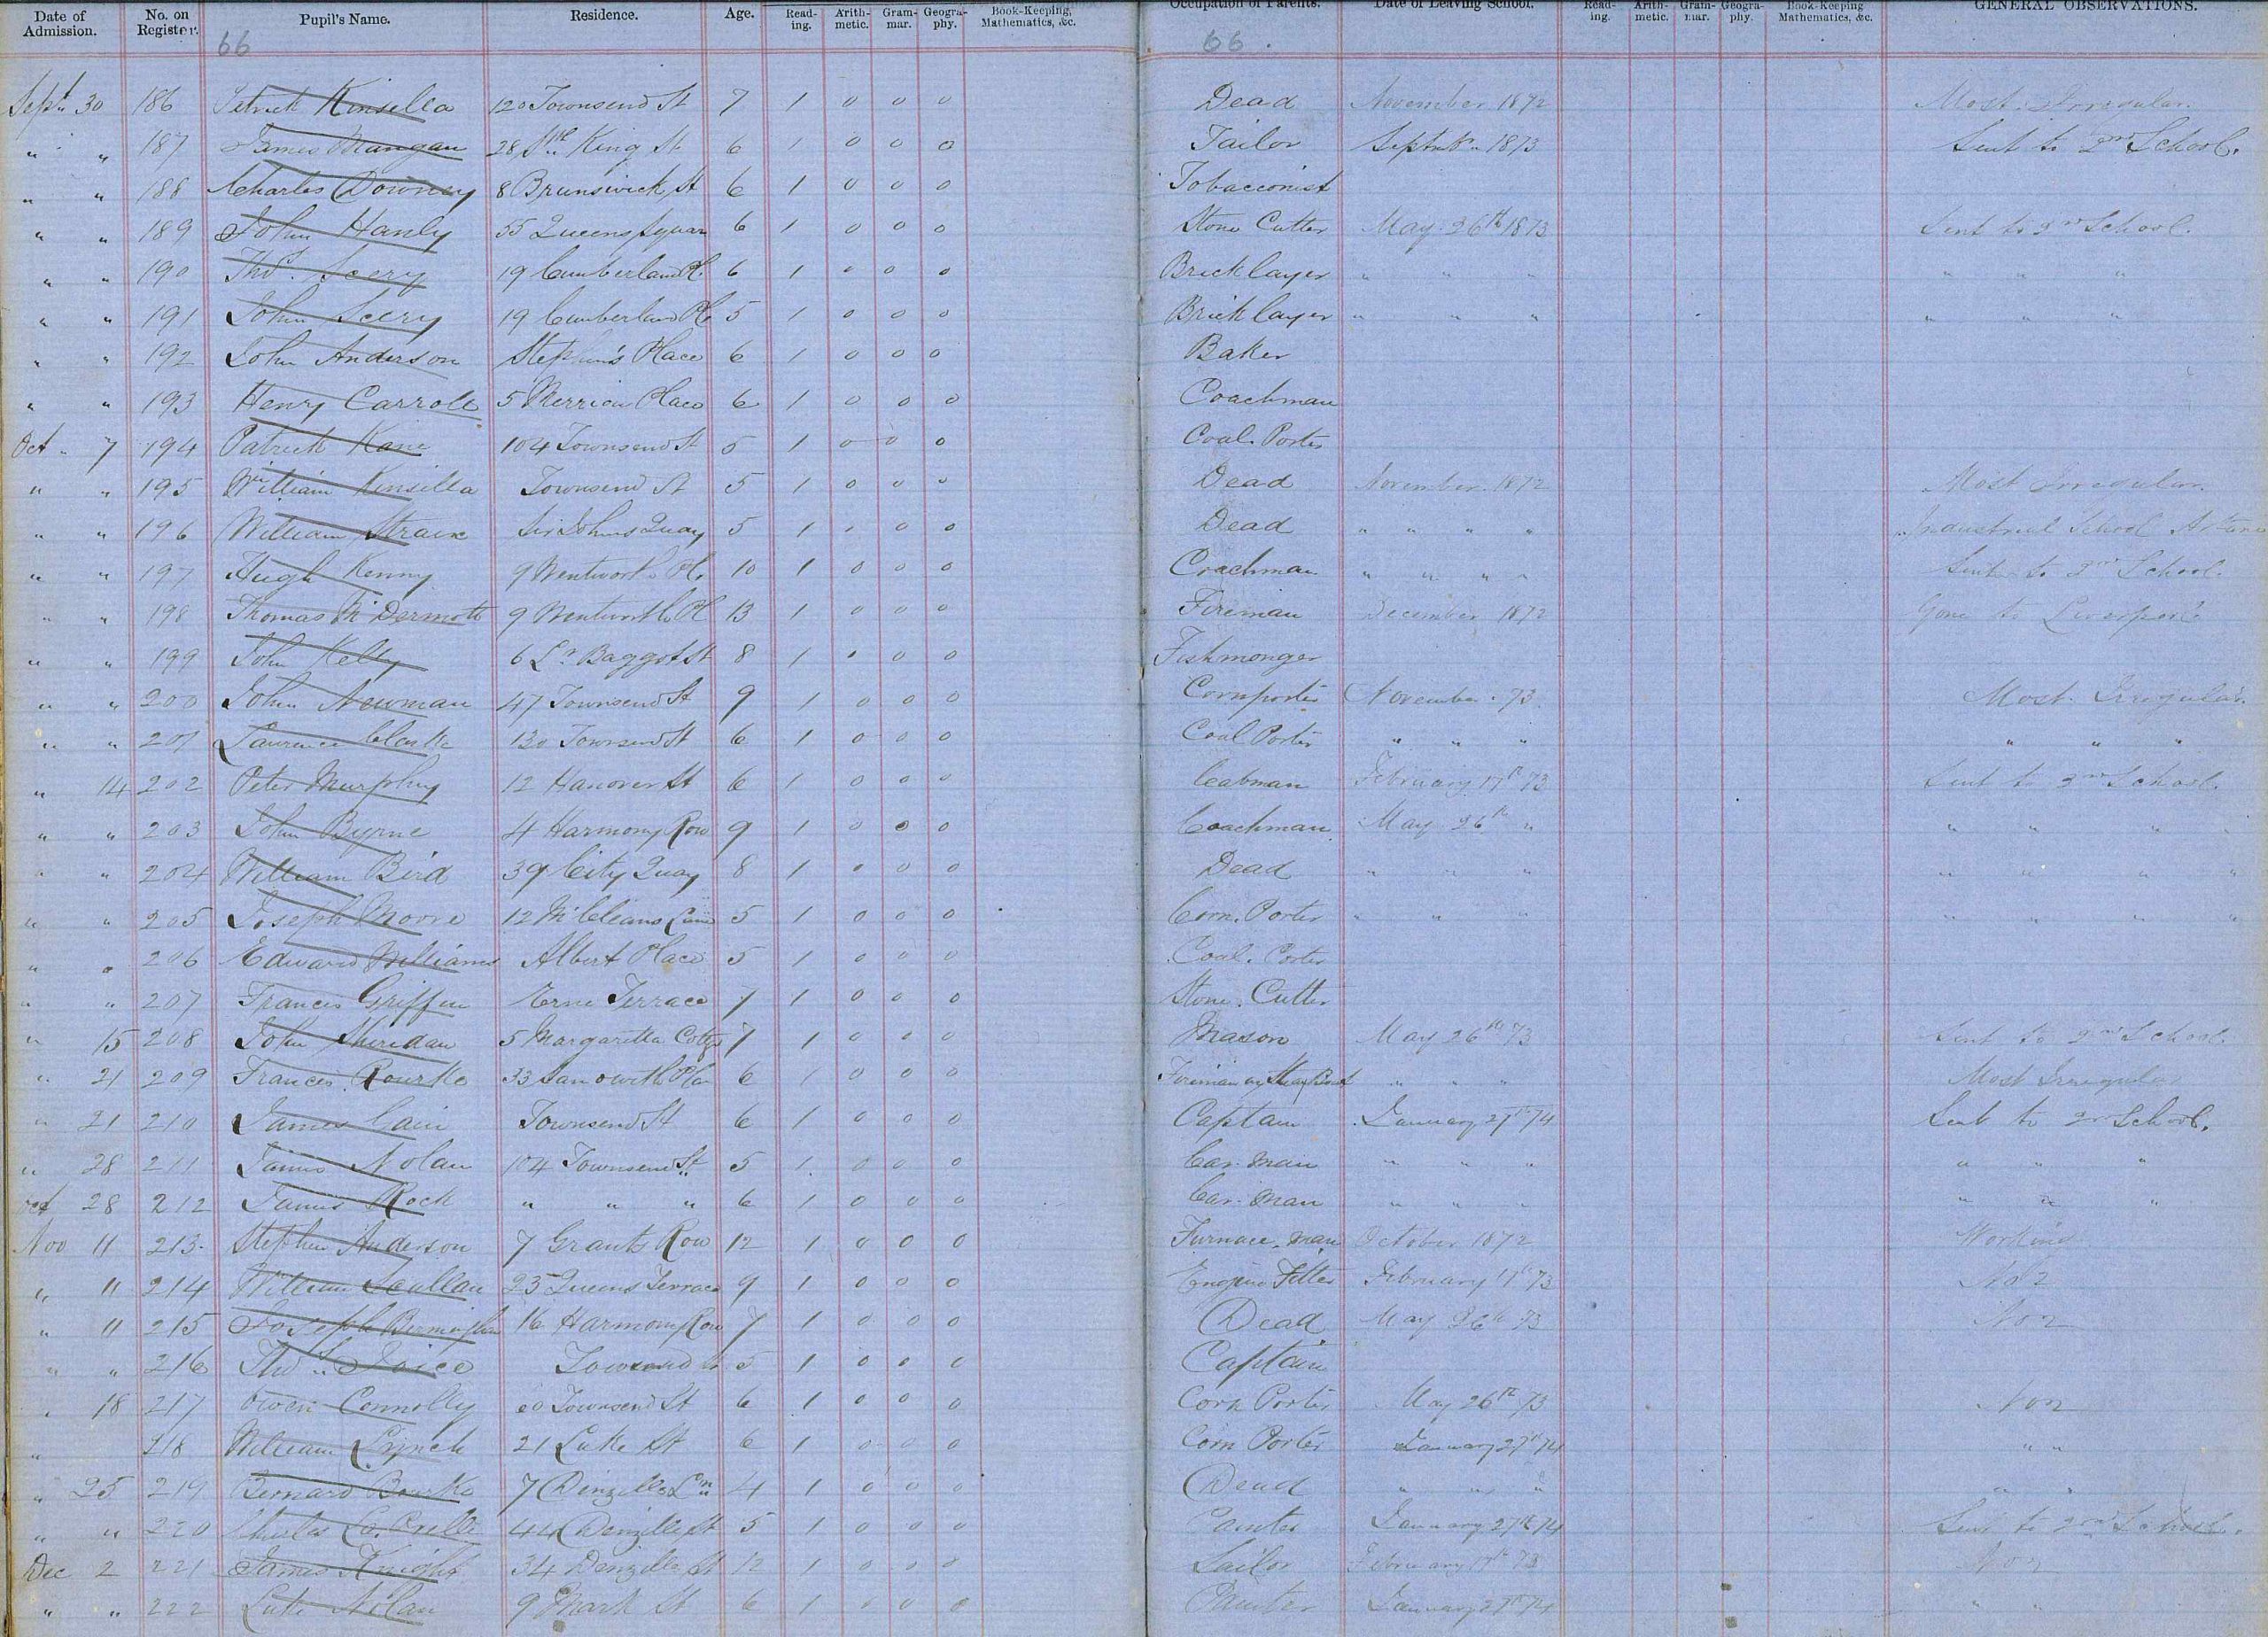 Date of Admission. No. on Register. Pupil's Name. Residence. Age. Read-ing. Arith-metic. Gram-mar. Geogra-phy. Book-Keeping, Mathematics, &c. Occupation of Parents. Date of Leaving School. Read-ing. Arith-metic. Gram-mar. Geogra-phy. Book-Keeping Mathematics, &c. GENERAL OBSERVATIONS.
66 66
Sept 30 186 Patrick Kinsella 120 Townsend St 7 1 0 0 0 Dead November 1872 Most Irregular.
" " 187 James Mangan 28 King St 6 1 0 0 0 Tailor 1873 Sent to 2nd School.
" " 188 Charles Downey 8 Brunswick St 6 1 0 0 0 Tobacconist
" " 189 John Hanly 55 Queens Square 6 1 0 0 0 Stone Cutter May 26th 1873 Sent to 2nd School.
" " 190 Thos. Seery 19 Cumberland Pl 6 1 0 0 0 Bricklayer " " " " " "
" " 191 John Seery 19 Cumberland Pl 5 1 0 0 0 Bricklayer " " " " " "
" " 192 John Anderson Stephen's Place 6 1 0 0 0 Baker
" " 193 Henry Carroll 5 Merrion Place 6 1 0 0 0 Coachman
Oct 7 194 Patrick Kane 104 Townsend St 5 1 0 0 0 Coal Porter
" " 195 William Kinsella Townsend St 5 1 0 0 0 Dead November 1872 Most Irregular.
" " 196 William Strain Sir Johns Quay 5 1 . 0 0 Dead " " " " Industrial School Artane
" " 197 Hugh Kenny 9 Wentworth Pl. 10 1 0 0 0 Coachman " " " " Sent to 2nd School.
" " 198 Thomas McDermott 9 Wentworth Pl 13 1 0 0 0 Fireman December 1872 Gone to Liverpool
" " 199 John Kelly 6 Lr Baggot St 8 1 . 0 0 Fishmonger
" " 200 John Newman 47 Townsend St 9 1 0 0 0 Cornporter November 73 Most Irregular.
" " 201 Laurence Clarke 130 Townsend St 6 1 0 0 0 Coal Porter " " " " " "
" 14 202 Peter Murphy 12 Hanover St 6 1 0 0 0 Cabman February 17th 73 Sent to 2nd School.
" " 203 John Byrne 4 Harmony Row 9 1 0 0 0 Coachman May 26th " " " " "
" " 204 William Bird 39 City Quay 8 1 0 0 0 Dead " " " " " " "
" " 205 Joseph Moore 12 Lane 5 1 0 0 0 Corn. Porter " " " " " " "
" " 206 Edward Williams Albert Place 5 1 0 0 0 Coal. Porter
" " 207 Francis Griffin Erne Terrace 7 1 0 0 0 Stone. Cutter
" 15 208 John Sheridan 5 Margaretta Cottg 7 1 0 0 0 Mason May 26th 73 Sent to 2nd School.
" 21 209 Francis Rourke 33 6 1 0 0 0 Fireman " " " Most Irregular
" 21 210 James Cain Townsend St 6 1 0 0 0 Captain January 27th 74 Sent to 2nd School.
" 28 211 James Nolan 174 Townsend St 5 1 0 0 0 Car. man " " " " " "
Oct 28 212 James Rock " " " 6 1 0 0 0 Car. man " " " " " "
Nov 11 213 Stephen Anderson 7 Grants Row 12 1 0 0 0 Furnace. man October 1872 Working
" 11 214 William Scullan 25 Queens Terrace 9 1 0 0 0 Engine Fitter February 17th 73 No 2
" 11 215 Joseph Bermingham 16 Harmony Row 7 1 0 0 0 Dead May 26th 73 No 2
" " 216 Thos. Joice Townsend St 5 1 0 0 0 Captain
" 18 217 Owen Connolly 60 Townsend St 6 1 0 0 0 Corn Porter May 26th 73 No 2
" 218 William Lynch 21 Luke St 6 1 0 0 0 Corn Porter January 27th 74 " "
" 25 219 Bernard Bourke 7 Denzille Ln 4 1 0 0 0 Dead " " " " "
" " 220 Charles 44 Denzille St 5 1 0 0 0 Painter January 27th 74 Sent to 2nd School.
Dec 2 221 James Knight 34 Denzille St 12 1 0 0 0 Sailor February 17th 73 No 2
" " 222 Luke Nolan 9 Mark St 6 1 0 0 0 Painter January 27th 74 " "